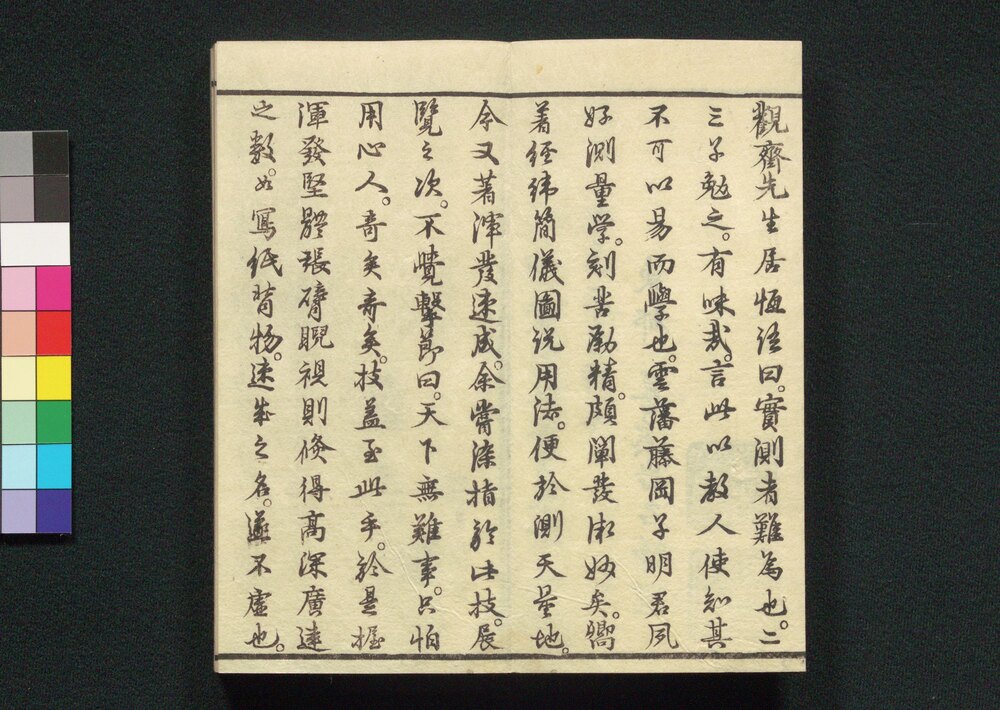 觀齋先生居恆語曰。實測者難為也。二
三子勉之。有味哉。言此以教人使知其
不可以易而學也。雲藩藤岡子明君夙
好測量学。刻苦勵精。頗闡發術妙矣。嚮
著經緯簡儀圖说用法。便於測天量地。
今又著渾發速成。余嘗染指於此技。展
覽之次。不覺擊節曰。天下無難事。只怕
用心人。奇矣奇矣。技蓋至此乎。於是握
渾發堅體張臂睨視則倏得高深廣遠
之数。如寫紙背物。速成之名。遂不虛也。